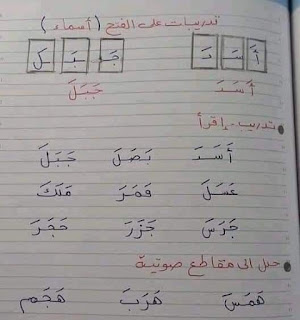 تدريبات على الفتح (أسماء)
أَ سَ دَ جَ بَ لَ
أَسَدَ جَبَلَ
تدريب - إقرأ
أَسَدَ بَصَلَ جَبَلَ
عَسَلَ قَمَرَ مَلَكَ
جَرَسَ جَزَرَ حَجَرَ
حلل الى مقاطع صوتية
هَمَسَ هَرَبَ هَجَم